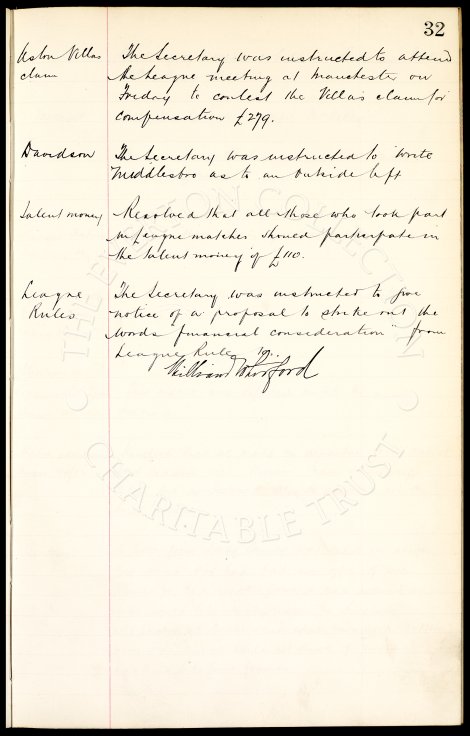 32
Aston Villas claim
The Secretary was instructed to attend
the League meeting at Manchester on
Friday to contest the Villa's claim for
compensation £279.
Davidson
The Secretary was instructed to write
Middlesbro as to an outside left
Talent money
Resolved that all those who took part
in League matches should participate in
the talent money of £110.
League Rules
The Secretary was instructed to give
notice of a proposal to strike out the
words financial consideration" from
League Rule 19.
William
THE EVERTON COLLECTION
CHARITABLE TRUST